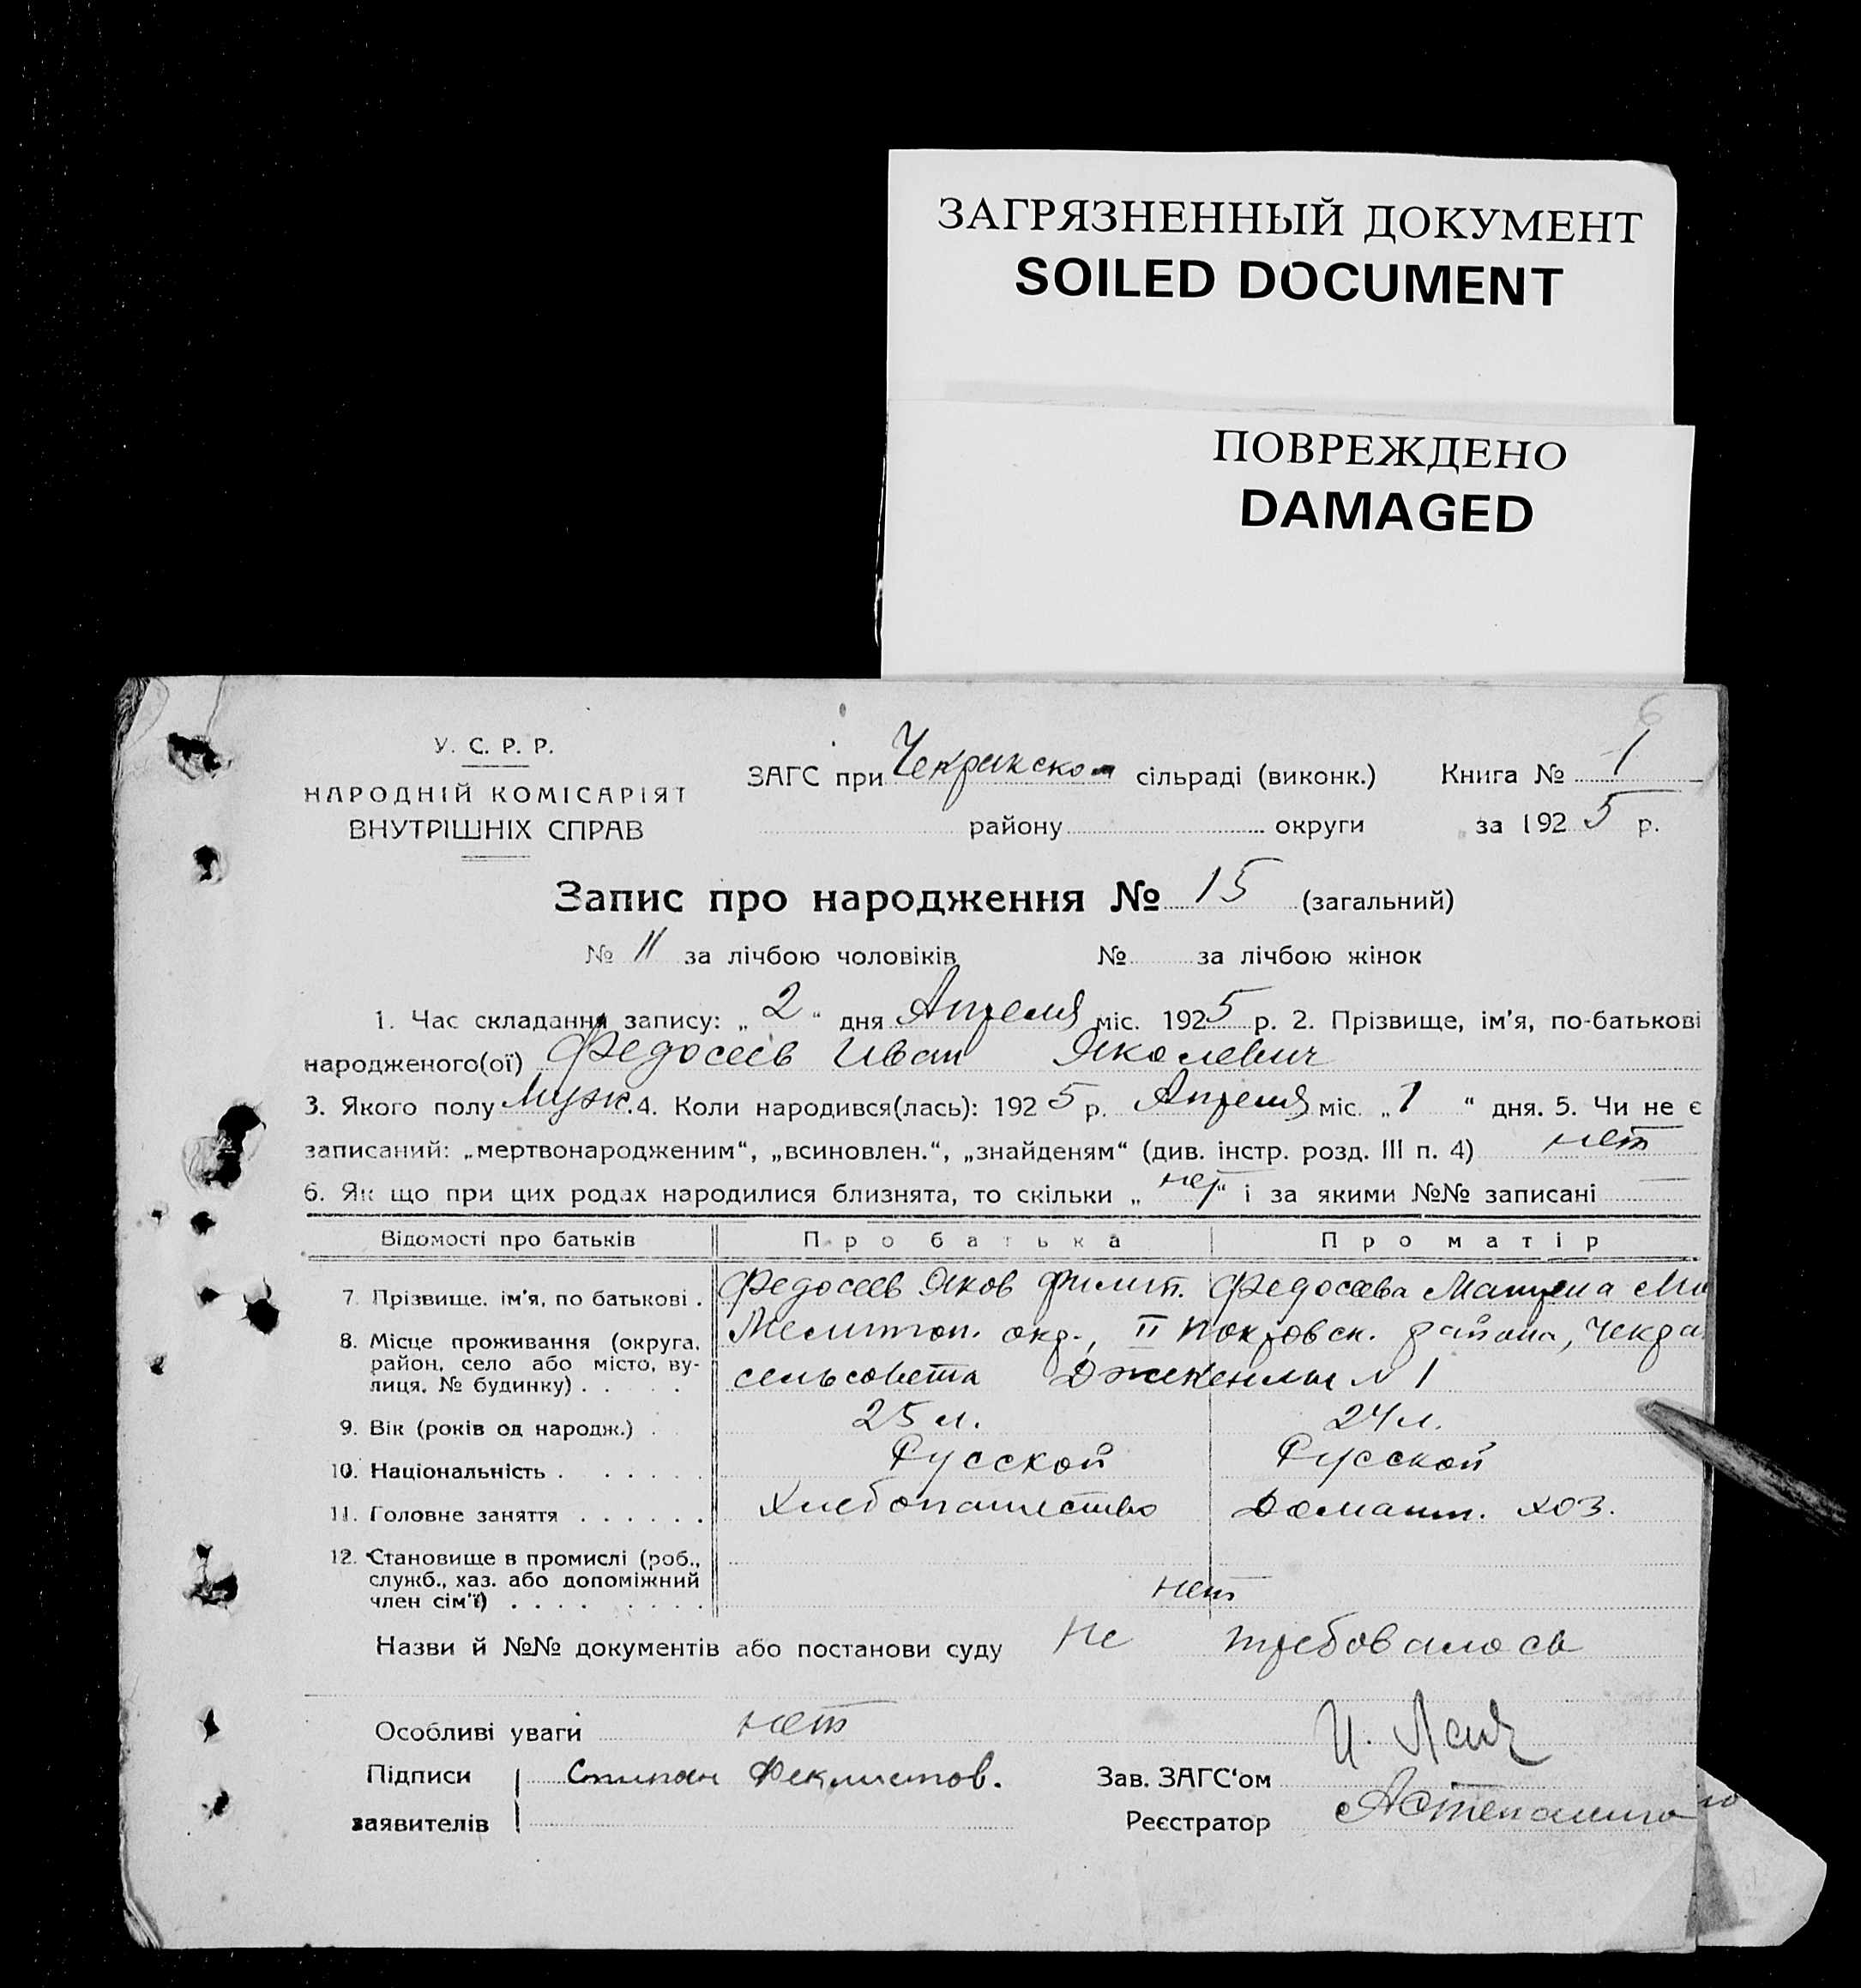 ЗАГРЯЗНЕННЫЙ ДОКУМЕНТ
SOILED DOCUMENT
ПОВРЕЖДЕНО
DAMAGED
6
У. С. Р. Р.
НАРОДНІЙ КОМІСАРІЯТ
ВНУТРІШНІХ СПРАВ
ЗАГС при Чекракском сільраді (виконк.) Книга № 1
району округи за 1925 р.
Запис про народження № 15 (загальний)
№ 11 за лічбою чоловіків № за лічбою жінок
1. Час складання запису: „2“ дня Апреля міс. 1925 р. 2. Прізвище, ім'я, по-батькові
народженого(ої) Федосеев Иван Яковлевич
3. Якого полу Муж. 4. Коли народився(лась): 1925 р. Апреля міс. „1“ дня. 5. Чи не є
записаний: „мертвонародженим“, „всиновлен.“, „знайденям“ (див. інстр. розд. III п. 4) нет
6. Як що при цих родах народилися близнята, то скільки „нет“ і за якими №№ записані —
Відомості про батьків Про батька Про матір
7. Прізвище, ім'я, по батькові . Федосеев Яков Филип. Федосеева Матрена
8. Місце проживання (округа, район, село або місто, вулиця, № будинку) . . . . . Мелитоп. окр., II Покровск. района, Чекра
сельсовета Дженкелы № 1
9. Вік (років од народж.) . 25 л. 24 л.
10. Національність . . . . . . Русской Русской
11. Головне заняття . . . . . . Хлебопашество Домашн. хоз.
12. Становище в промислі (роб., служб., хаз. або допоміжний член сім'ї) . . . . . . . . . нет
Назви й №№ документів або постанови суду Не требовалось
Особливі уваги нет
Підписи Степан Феклистов. Зав. ЗАГС'ом И.
заявителів Реєстратор